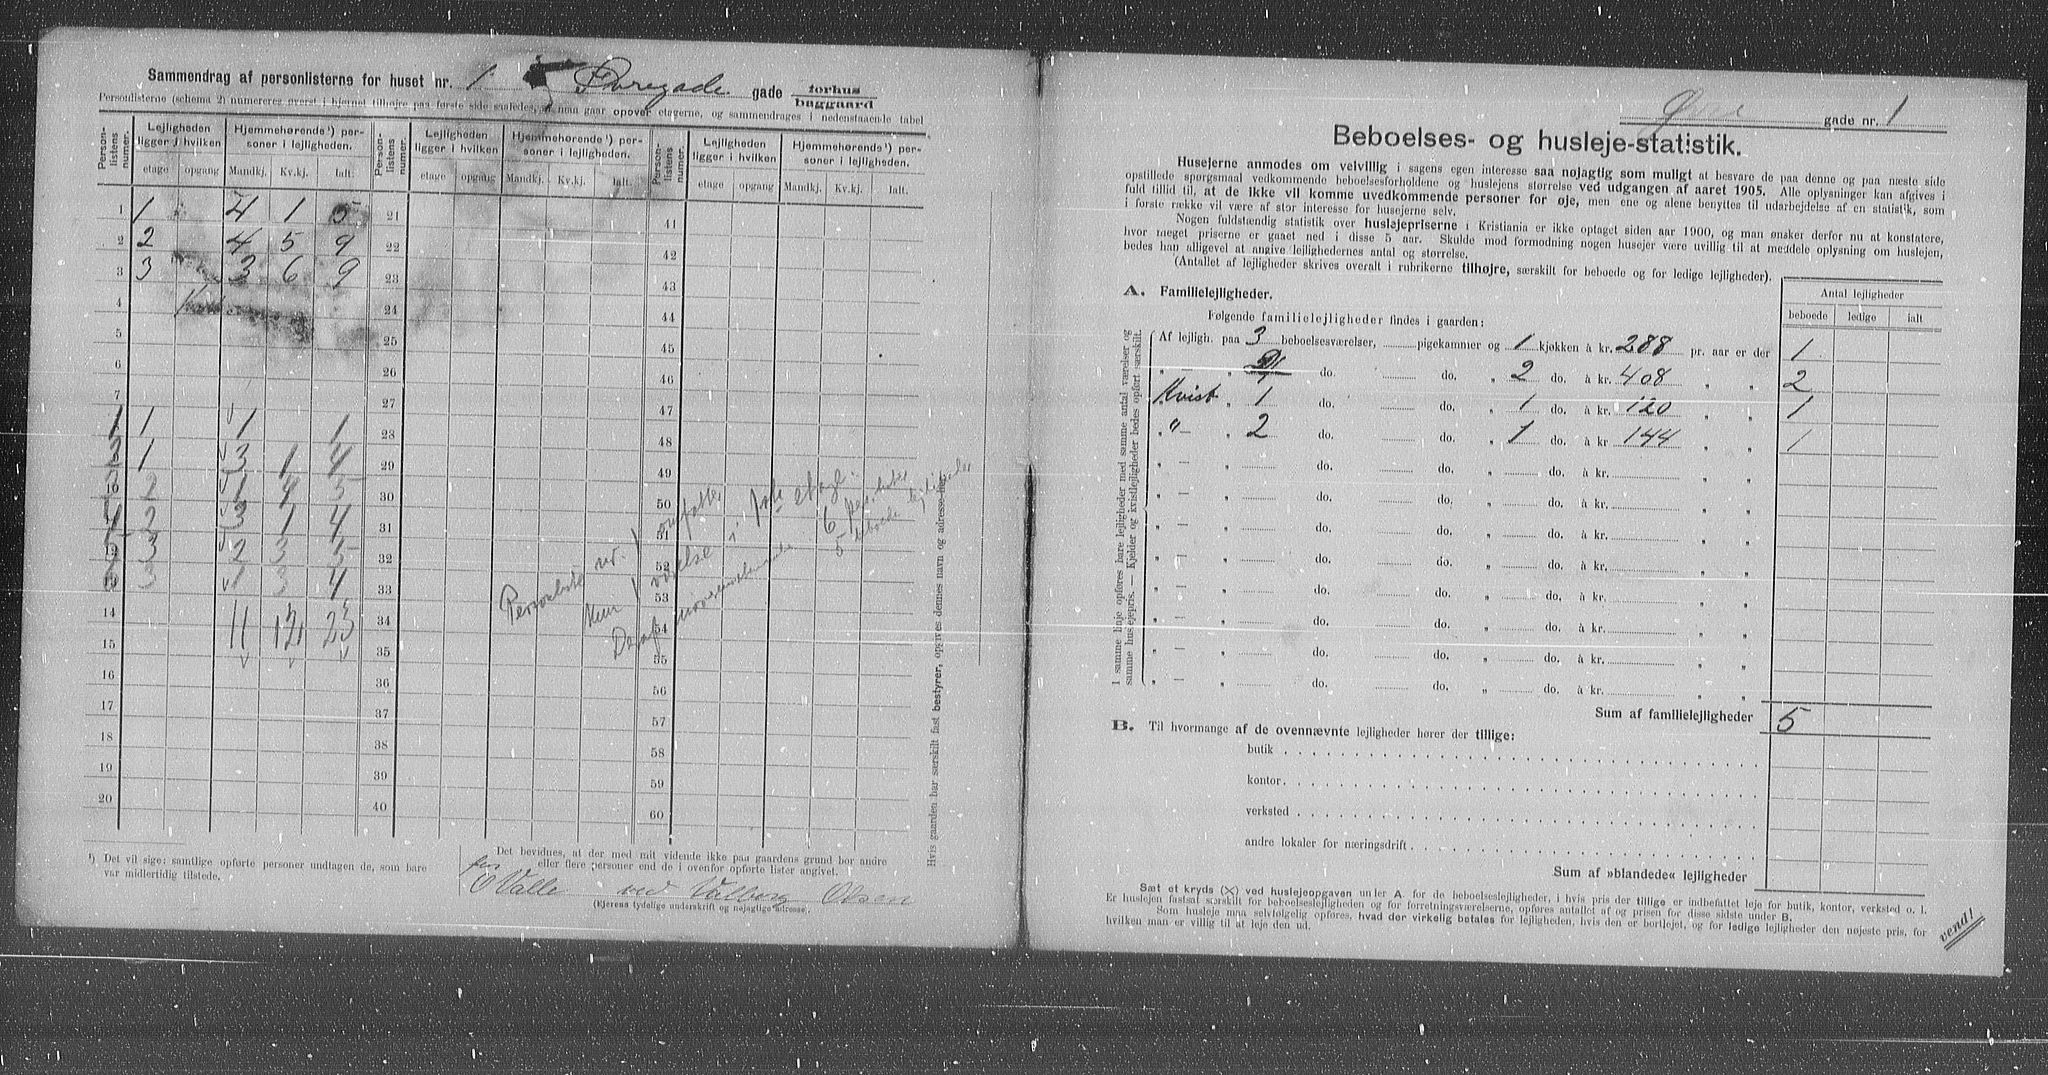 Sammendrag af personlisterne for huset nr. 1 Øvregade gade forhus
baggaard
Personlisterne (schema 2) numereres øverst i hjørnet tilhøire paa første side saaledes, at man gaar opover etagerne, og sammendrages i nedenstaaende tabel
Person-listens numer.
Lejligheden ligger i hvilken
Hjemmehørende¹) personer i lejligheden.
Person-listens numer.
Lejligheden ligger i hvilken
Hjemmehørende¹) personer i lejligheden.
Person-listens numer.
Lejligheden ligger i hvilken
Hjemmehørende¹) personer i lejligheden.
etage opgang Mandkj. Kv.kj. Ialt. etage opgang Mandkj. Kv.kj. Ialt. etage opgang Mandkj. Kv.kj. Ialt.
1 1 4 1 5 21 41
2 2 4 5 9 22 42
3 3 3 6 9 23 43
4 24 44
5 25 45
6 26 46
7 27 47
1 1 1 1 23 48
2 1 3 1 4 29 49
3 10 2 1 4 5 30 50
4 2 3 1 4 31 51
5 12 3 2 3 5 32 52
6 13 3 1 3 4 33 53
14 11 12 23 34 54
15 35 55
16 36 56
17 37 57
18 38 58
19 39 59
20 40 60
Personliste nr. 1 omfatter
kun 1 værelse i 1ste etage.
6 pers.lister
5 beboede lejligheder
Hvis gaarden har særskilt fast bestyrer, opgives dennes navn og adresse her
¹) Det vil sige: samtlige opførte personer undtagen de, som bare
var midlertidig tilstede.
Det bevidnes, at der med mit vidende ikke paa gaardens grund bor andre
eller flere personer end de i ovenfor opførte lister angivet.
for
O Valle ved Valborg Olsen
(Ejerens tydelige underskrift og nøjagtige adresse).
Øvre gade nr. 1
Beboelses- og husleje-statistik.
Husejerne anmodes om velvillig i sagens egen interesse saa nøjagtig som muligt at besvare de paa denne og paa næste side
opstillede spørgsmaal vedkommende beboelsesforholdene og huslejens størrelse ved udgangen af aaret 1905. Alle oplysninger kan afgives i
fuld tillid til, at de ikke vil komme uvedkommende personer for øje, men ene og alene benyttes til udarbejdelse af en statistik, som
i første række vil være af stor interesse for husejerne selv.
Nogen fuldstændig statistik over huslejepriserne i Kristiania er ikke optaget siden aar 1900, og man ønsker derfor nu at konstatere,
hvor meget priserne er gaaet ned i disse 5 aar. Skulde mod formodning nogen husejer være uvillig til at meddele oplysning om huslejen,
bedes han alligevel at angive lejlighedernes antal og størrelse.
(Antallet af lejligheder skrives overalt i rubrikerne tilhøjre, særskilt for beboede og for ledige lejligheder).
A. Familielejligheder.
Følgende familielejligheder findes i gaarden:
Antal lejligheder
beboede ledige ialt
I samme linje opføres bare lejligheder med samme antal værelser og
samme husjepris. — Kjelder og kvistlejligheder bedes opført særskilt.
Af lejligh. paa 3 beboelsesværelser, pigekammer og 1 kjøkken à kr. 288 pr. aar er der 1
" — " do. do. " 2 do. à kr. 408 " " 2
Kvist " 1 do. do. " 1 do. à kr. 120 " " 1
" " — " 2 do. do. " 1 do. à kr 144 " " 1
" — " do. do. " do. à kr. " "
" — " do. do. " do. à kr. " "
" — " do. do. " do. à kr. " "
" — " do. do. " do. à kr. " "
" — " do. do. " do. à kr. " "
" — " do. do. " do. à kr. " "
" — " do. do. " do. à kr. " "
" — " do. do. " do. à kr. " "
Sum af familielejligheder 5
B. Til hvormange af de ovennævnte lejligheder hører der tillige:
butik
kontor
verksted
andre lokaler for næringsdrift
Sum af »blandede« lejligheder
Sæt et kryds (X) ved huslejeopgaven under A. for de beboelseslejligheder, i hvis pris der tillige er indbefattet leje for butik, kontor, verksted o. l.
Er huslejen fastsat særskilt for beboelseslejligheden og for forretningsværelserne, opføres antallet af og prisen for disse sidste under B.
Som husleje maa selvfølgelig opføres, hvad der virkelig betales for lejligheden, hvis den er bortlejet, og for ledige lejligheder den nøjeste pris, for
hvilken man er villig til at leje den ud.
vend!